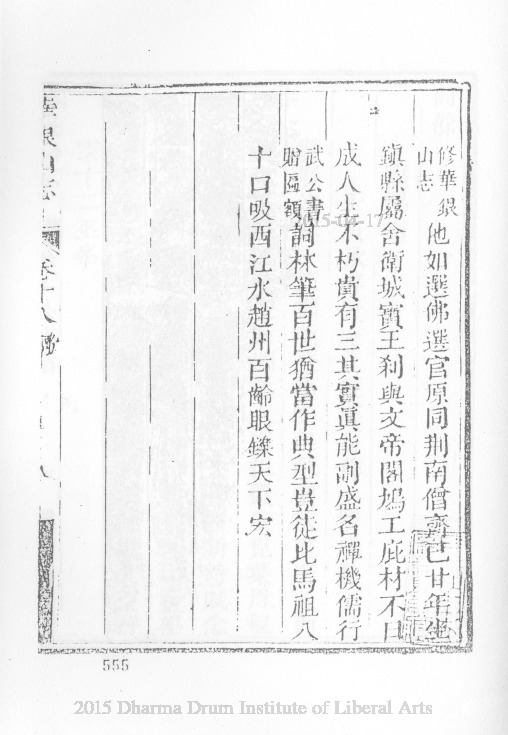 修華銀山志他如選佛選官原同荆南僧齊已廿年坐
鎮縣屬舍衛城實王刹與文帝閣鳩工庇材不日
成人生不朽貴有三其實眞能副盛名禪機儒行
武公書贈匾額詞林筆百世猶當作典型豈徒比馬祖八
十口吸西江水趙州百齡眼鑠天下宏
華銀山志 卷十八 歌 八
2015-04-17
555
2015 Dharma Drum Institute of Liberal Arts